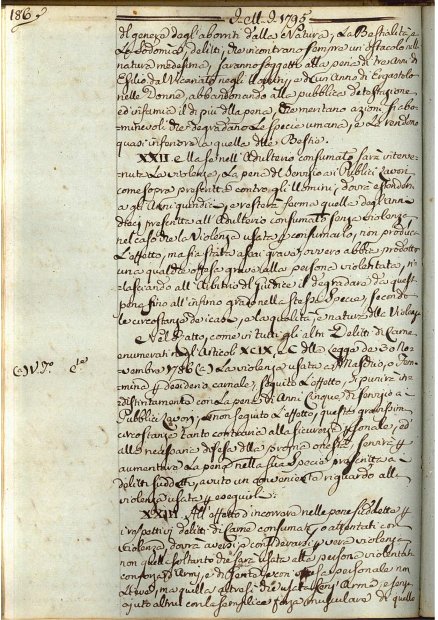 186
I. M. I. 1795
del genere degl'aborriti dalla Natura, La Bestialità, e
La Sodomia, delitti, che incontrano sempre un'ostacolo nella
natura medesima, saranno soggetti alla pena di tre anni di
Esilio dal Vicariato negli Uomini, e d'un Anno di Ergastolo
nelle Donne, abbandonando alla pubblica detestazione,
ed infamia il di più della pena, che meritano azioni sì abo-
minevoli, che degradano La specie umana, e La rendono
quasi inferiore a quella delle Bestie.
XXII. E se nell'Adulterio consumato sarà interve-
nuta La violenza, La pena del Servizio ai Pubblici Lavori
come sopra prescritta contro gli Uomini, dovrà estendersi
a gli Anni quindici, e resterà ferma quella degl'Anni
dieci prescritta all'Adulterio consumato senza violenza,
nel caso che la Violenza usata per consumarlo, non produca
L'effetto, ma sia stata assai grave, ovvero abbia prodotto
una qualche offesa grave alla persona violentata, ri-
lasciando all'Arbitrio del Giudice il degradare da questa
pena fino all'infimo grado nella stessa Specie, secondo
le circostanze dei casi, e la qualità, e natura della Violenza
E nel ratto, come in tutti gli altri Delitti di Carne
enumerati agl'Articoli XCIX, e C della Legge da 30 No-
vembre 1786 (a) La violenza usata a Maschio, o Fem-
mina per desiderio carnale, seguito L'effetto, si punirà in-
distintamente con La pena di Anni Cinque di servizio ai
Pubblici Lavori, e non seguito L'effetto, questa gravissima
circostanza tanto contraria alla sicurezza personale, ed
alla necessaria difesa della propria onestà, servirà per
aumentare La pena nella sua Specie prescritta ai
delitti suddetti, avuto un conveniente riguardo alla
violenza usata per eseguirli.
XXIII. All'effetto d'incorrere nelle pene suddette per
i rispettivi delitti di Carne consumati, o attentati con
violenza, dovrà aversi, e considerarsi per vera violenza
non quella soltanto che sarà usata alla persona violentata
con forza d'Armi, e di Gente
ma quella altresì che usata senz'Armi, e senz'
ajuto altrui con la semplice forza muscolare di quello